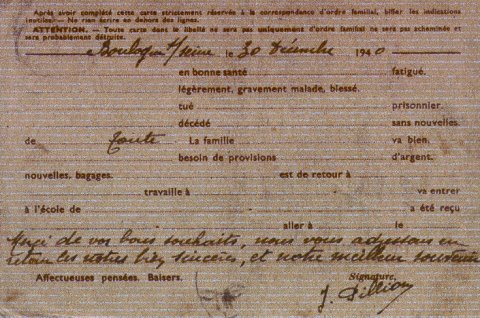 Après avoir complété cette carte strictement réservée à la correspondance d'ordre familial, biffer les indications
inutiles. — Ne rien écrire en dehors des lignes.
ATTENTION. — Toute carte dont le libellé ne sera pas uniquement d'ordre familial ne sera pas acheminée et
sera probablement détruite.
Boulogne s/ Seine le 30 Décembre 1940
en bonne santé fatigué.
légèrement, gravement malade, blessé.
tué prisonnier.
décédé sans nouvelles
de toute La famille va bien.
besoin de provisions d'argent.
nouvelles, bagages. est de retour à
travaille à va entrer
à l'école de a été reçu
aller à le
de vos bons souhaits, nous vous adressons en
retour les nôtres bien sincères, et notre meilleur souvenir
Affectueuses pensées. Baisers. Signature,
J.